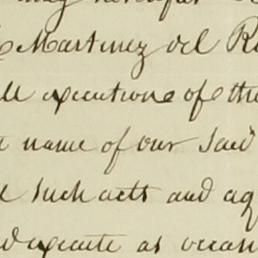 may
Martinez del R
ll executions of the
name of our said
d such acts and ag
d execute as occas